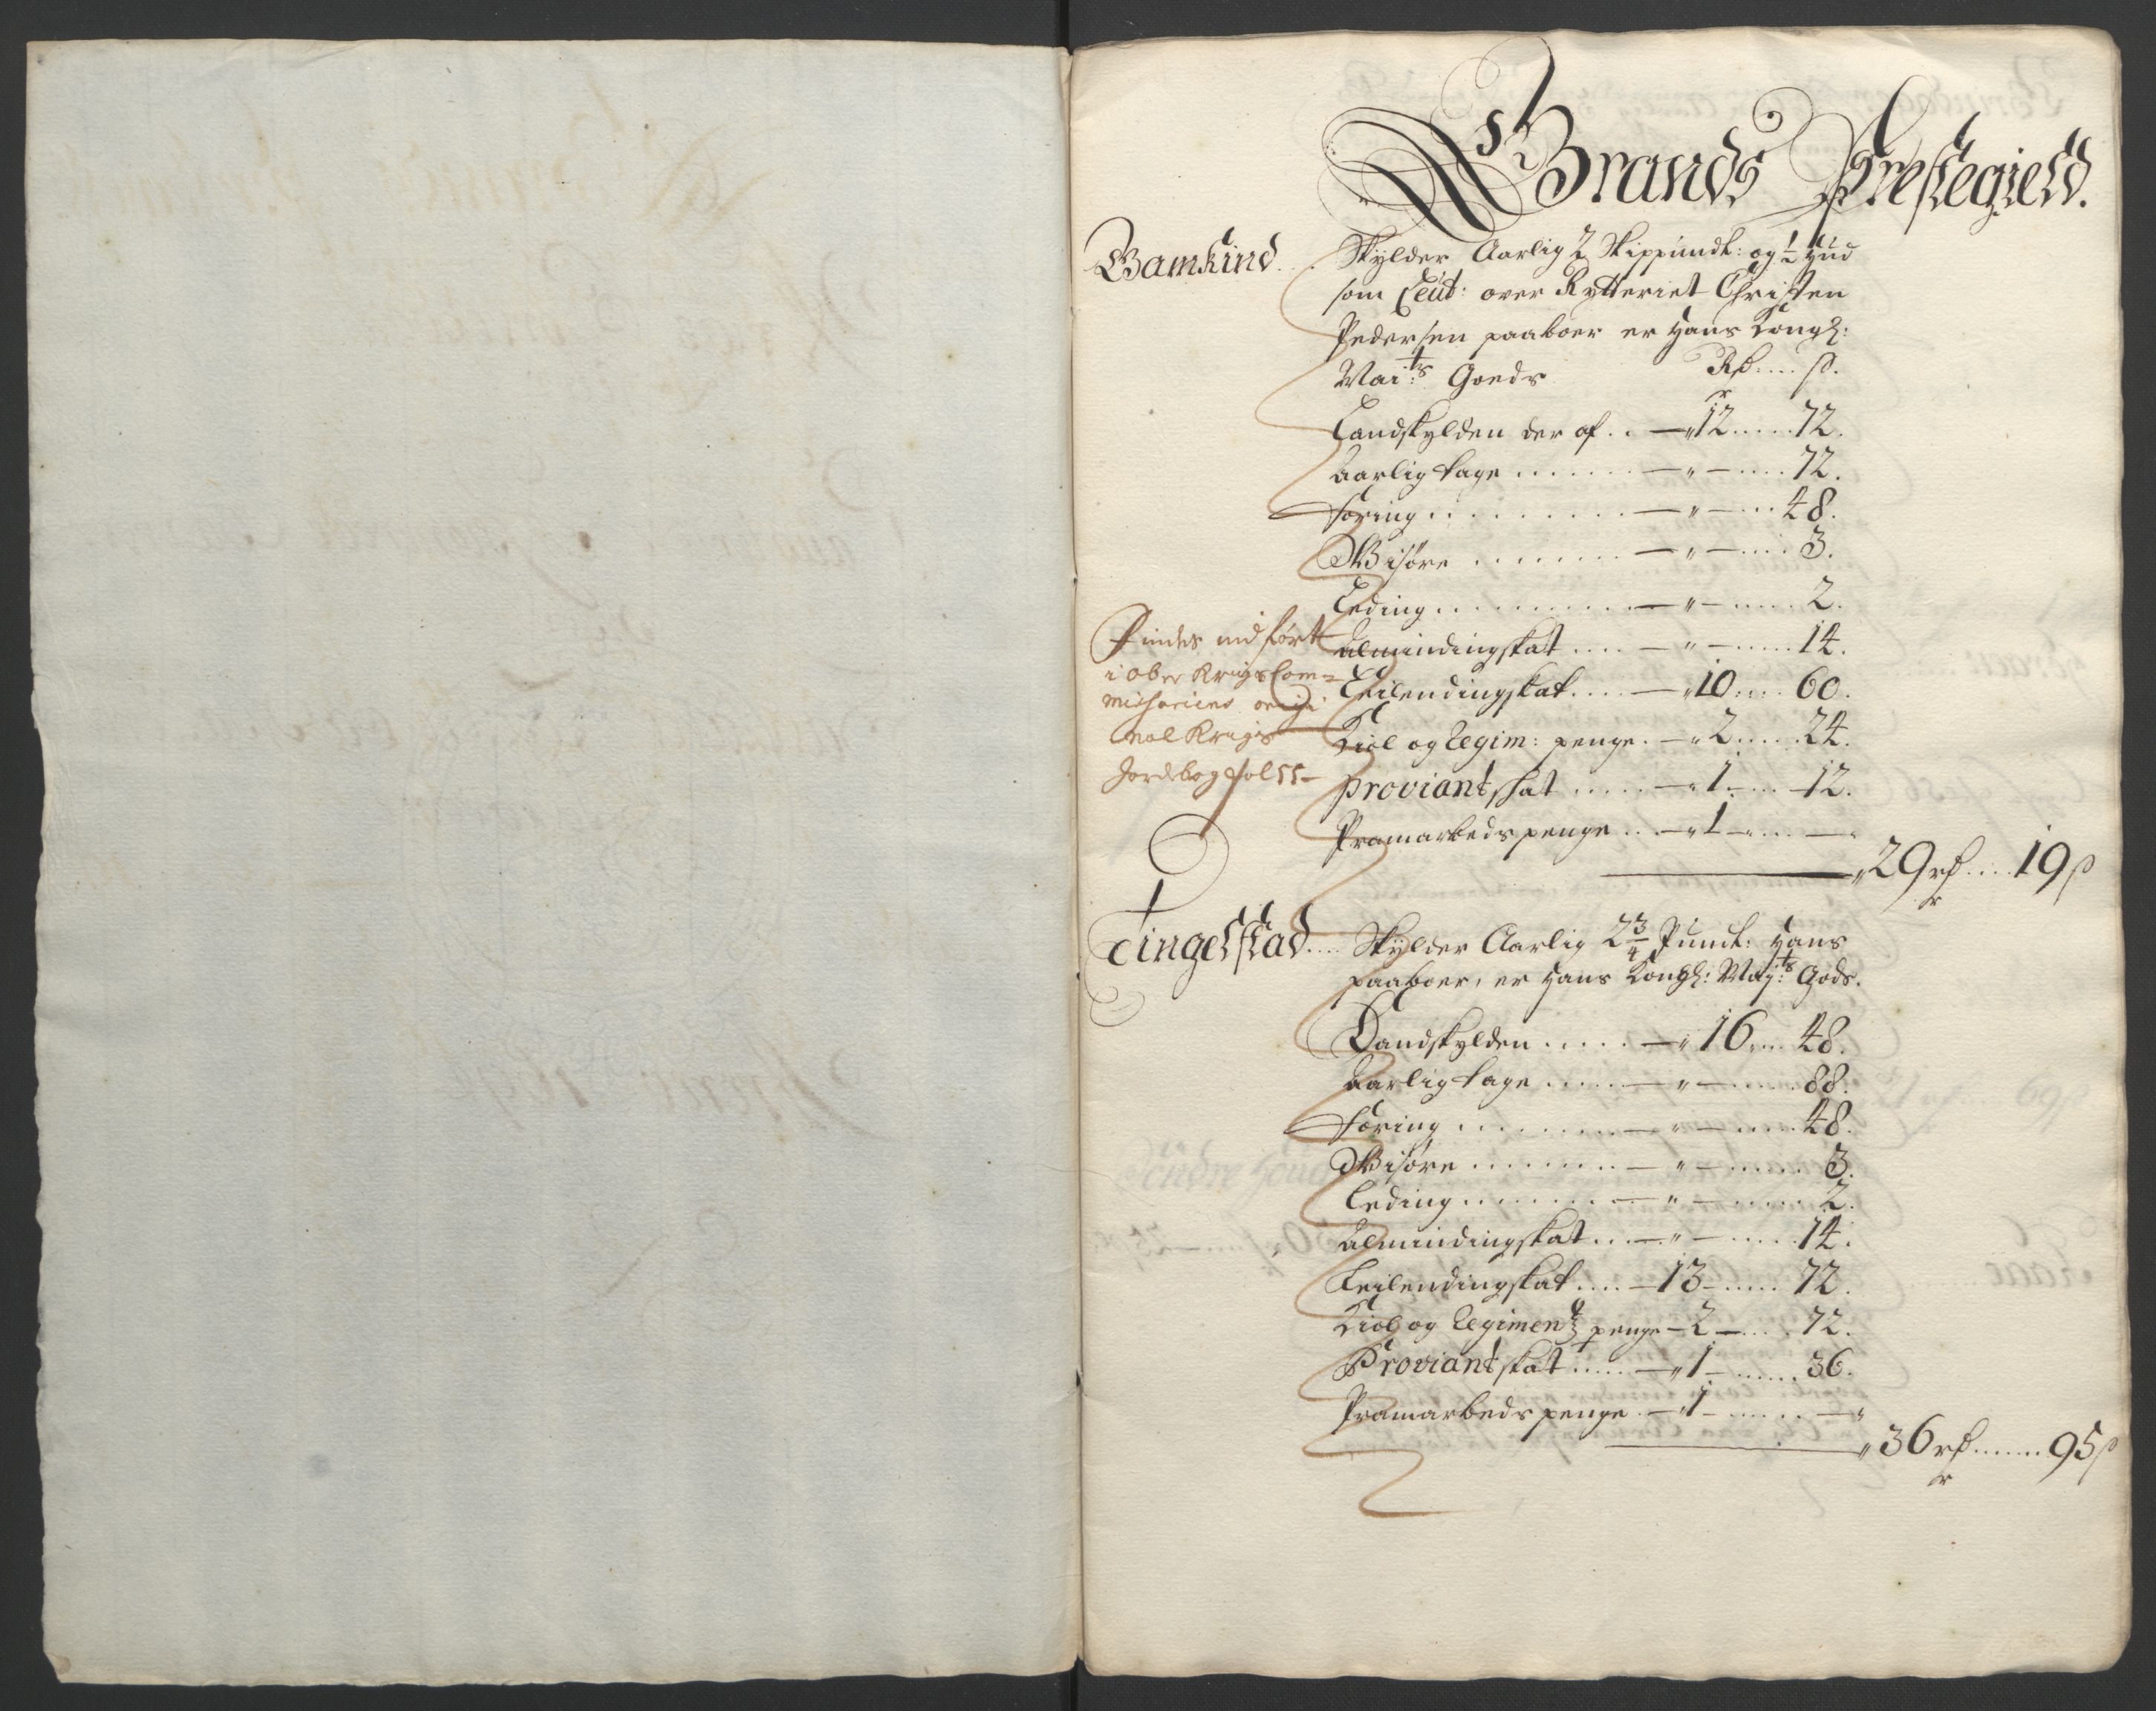 Brands Prestegield.
Gamkind. Skylder Aarlig 2 Skippundt: og ½ Hud
som Leut: over Rytteriet Christen
Pedersen paaboer er Hans Kongl:
Mai:ts Goeds Rd .... ß.
Landskylden der af .. — 12 ..... 72.
Aarlig tage ....... — " — .... 72.
Foring ......... — " — ... 48.
Wisøre ....... — " — .... 3.
Leding .......... — " — ..... 2.
Almindingskat .... — " — ..... 14.
Leilendingskat .... — "10 .... 60.
Kiol og Regim: penge. — "2 ..... 24.
Proviantskat ..... — "1 — ... 12.
Pramarbedspenge .. — "1 — .... —"
"29 rd .... 19 ß
Findes indført
i Ober Krigs Com=
missariens origi
nal Krigs
Jordebog fol 55 —
Tingelstad .... Skylder Aarlig 2¾ Pund: Hans
paaboer, er Hans Kongl: May:ts Gods.
Landskylden ..... — "16 .... 48.
Aarlig tage ..... — " — ..... 88.
Foring ........ — " — .... 48.
Wisøre ....... — " — ..... 3.
Leding ........ — " — ...... 2.
Almindingskat ... — " — ..... 14.
Leilendingskat .... — 13 — ..... 72.
Kiol og Regimentz penge — 2 — .... 72.
Proviantskat ..... — "1 — ...... 36.
Pramarbeds penge. — "1 — ...... —"
"36 rd ....... 95 ß